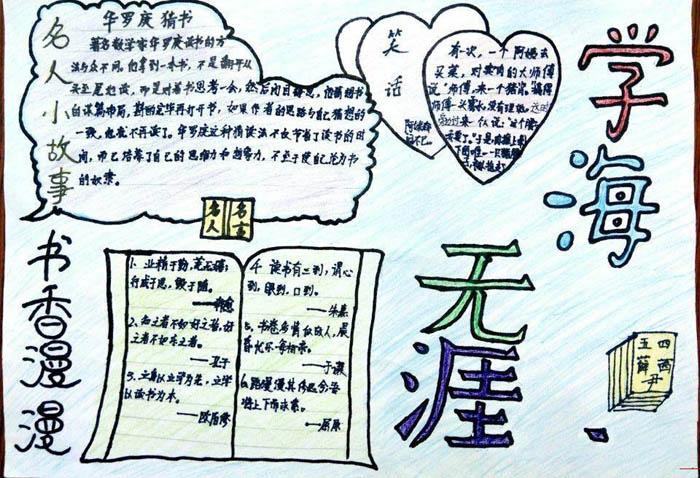 名人小故事
华罗庚猜书
著名数学家华罗庚读书的方
法与众不同。他拿到一本书，不是翻开从
头至尾地读，而是对着书思考一会，然后闭目静思。他猜想书
的谋篇布局，斟酌完毕再打开书，如果作者的思路与自己猜想的
一致，他就不再读了。华罗庚这种猜读法不仅节省了读书的时
间，而且培养了自己的思维力和想象力，不至于使自己沦为书
的奴隶。
笑话
有次，一个阿姨去
买菜，对卖肉的大师傅
说
名人
名言
书香漫漫
1、业精于勤，荒于嬉；
行成于思，毁于随。
——韩愈
2、知之者不如好之者，好
之者不如乐之者。
——孔子
3、立身以立学为先，立学
以读书为本。
——欧阳修
4、读书有三到，谓心
到，眼到，口到。
——朱熹
5、书卷多情似故人，晨
昏忧乐每相亲。
——于谦
6、路漫漫其修远兮，吾
将上下而求索。
——屈原
学海
无涯
四
五